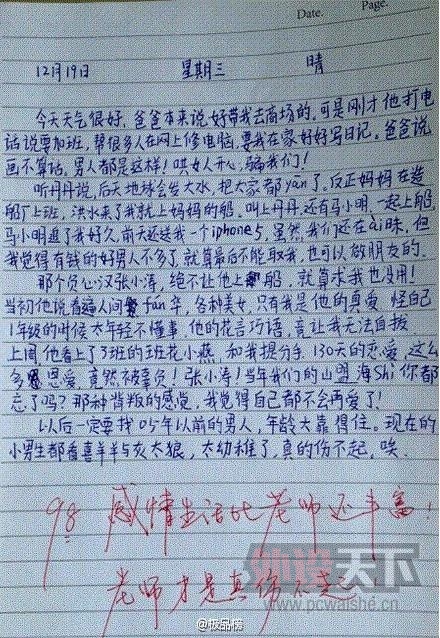 Date.
Page.
12月19日 星期三 晴
今天天气很好,爸爸本来说好带我去商场的,可是刚才他打电
话说要加班,帮很多人在网上修电脑,要我在家好好写日记。爸爸说
画不算话,男人都是这样!哄女人开心,骗我们!
听丹丹说,后天地球会发大水,把大家都yān了。反正妈妈在造
船厂上班,洪水来了我就上妈妈的船。叫上丹丹,还有马小明,一起上船,
马小明追了我好久,前天还送我一个iphone5,虽然我们还在ai昧,但
我觉得有钱的好男人不多了,就算最后不能取我,也可以做朋友的。
那个负心汉张小涛,绝不让他上船,就算求我也没用!
当初他说看遍人间fán华,各种美女,只有我是他的真爱 怪自己
1年级的时候太年轻不懂事,他的花言巧语,竟让我无法自拔
上周他看上了3班的班花小燕,和我提分手,130天的恋爱,这么
多恩爱,竟然被辜负!张小涛!当年我们的山盟海Shi你都
忘了吗?那种背叛的感觉,我觉得自己都不会再爱了!
以后一定要找05年以前的男人,年龄大靠得住。现在的
小男生都看喜羊羊与灰太狼,太幼稚了,真的伤不起,唉
98 感情生活比老师还丰富!
老师才是真伤不起
天下
www.pcwaishe.cn
@报品榜